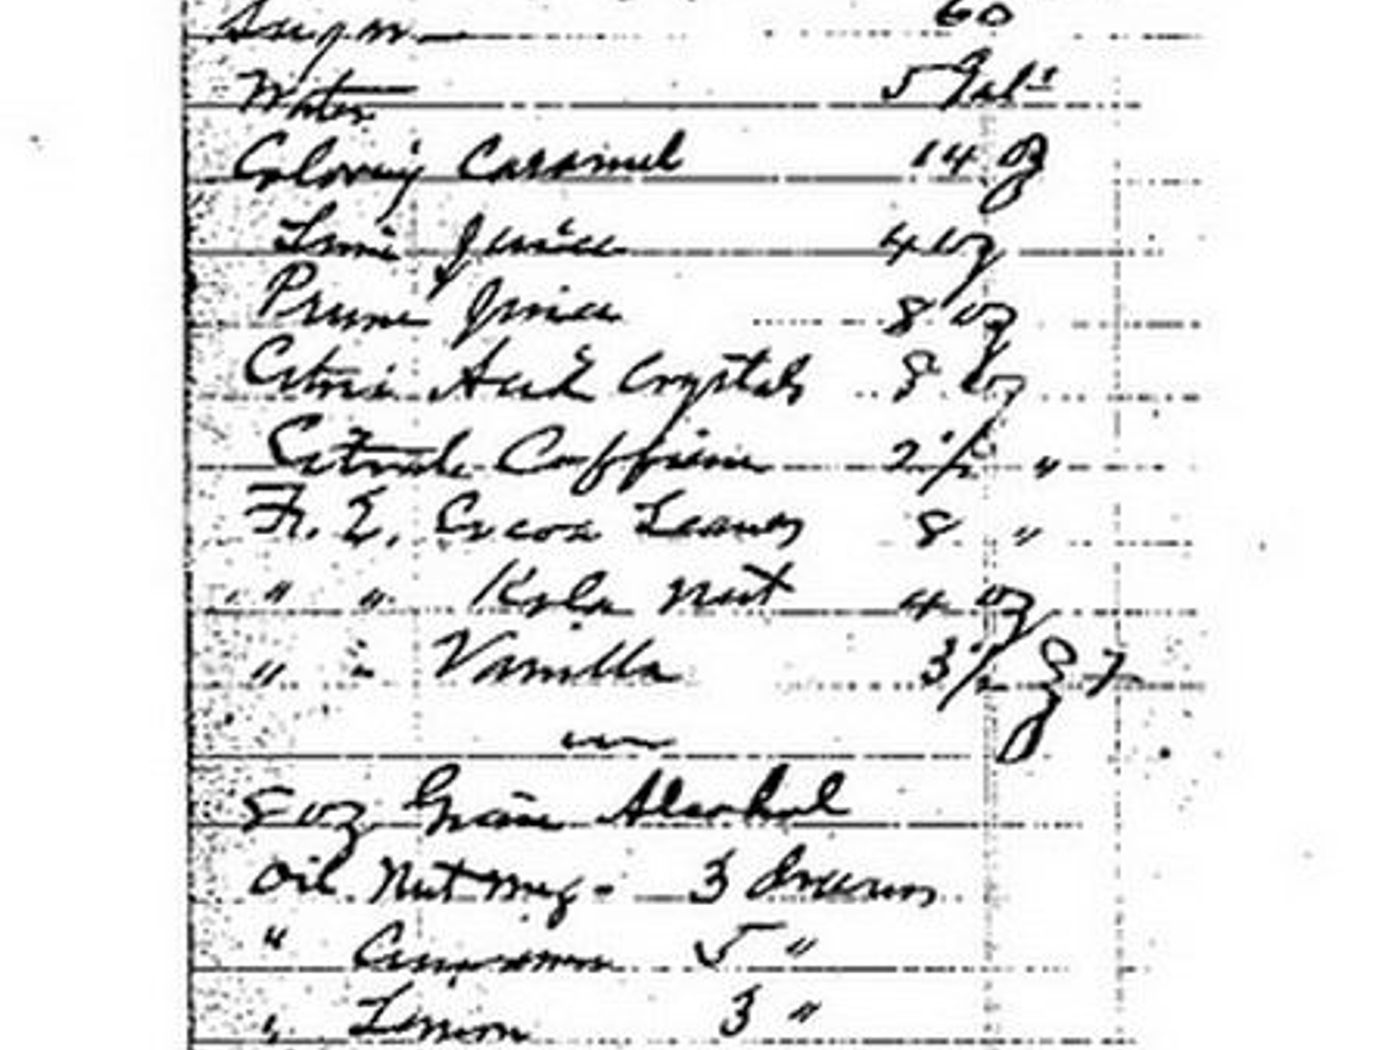 Sugar 60
Water 5 Gals
Coloring Caramel 14 oz
Lime Juice 4 oz
Prune Juice 8 oz
Citric Acid Crystals 8 oz
Citrate Caffiene 2 1/2 "
Fl. E. Cocoa Leaves 8 "
" " Kola Nut 4 oz
" " Vanilla 3 1/2
8 oz Grain Alcohol
Oil Nutmeg - 3 drams
" Cinnamon 5 "
" Lemon 3 "